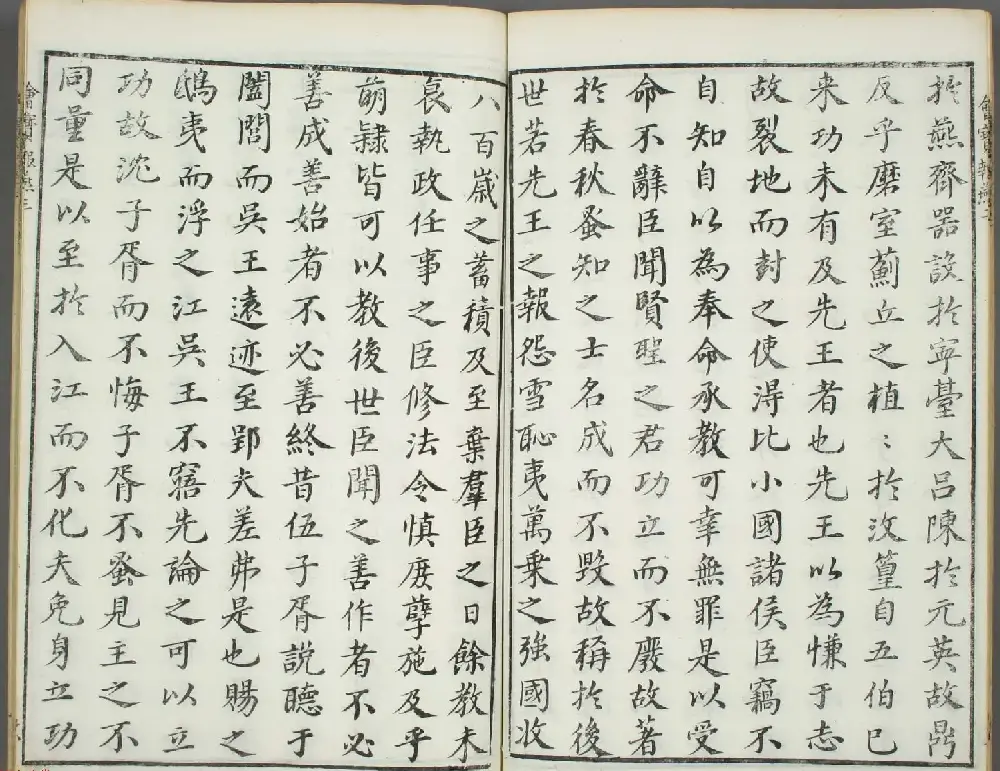 於燕齊器設於寧臺大呂陳於元英故鼎
反乎磨室薊丘之植〻於汶篁自五伯已
来功未有及先王者也先王以為慊于志
故裂地而封之使淂比小國諸侯臣竊不
自知自以為奉命承教可幸無罪是以受
命不辭臣聞賢聖之君功立而不廢故著
於春秋蚤知之士名成而不毀故稱於後
世若先王之報怨雪恥夷萬乗之強國收
八百嵗之蓄積及至棄羣臣之日餘教未
衰執政任事之臣修法令慎庻孽施及乎
萌隸皆可以教後世臣聞之善作者不必
善成善始者不必善終昔伍子胥説聽于
闔閭而吳王遠迹至郢夫差弗是也賜之
鴟夷而浮之江吳王不寤先論之可以立
功故沈子胥而不悔子胥不蚤見主之不
同量是以至於入江而不化夫免身立功